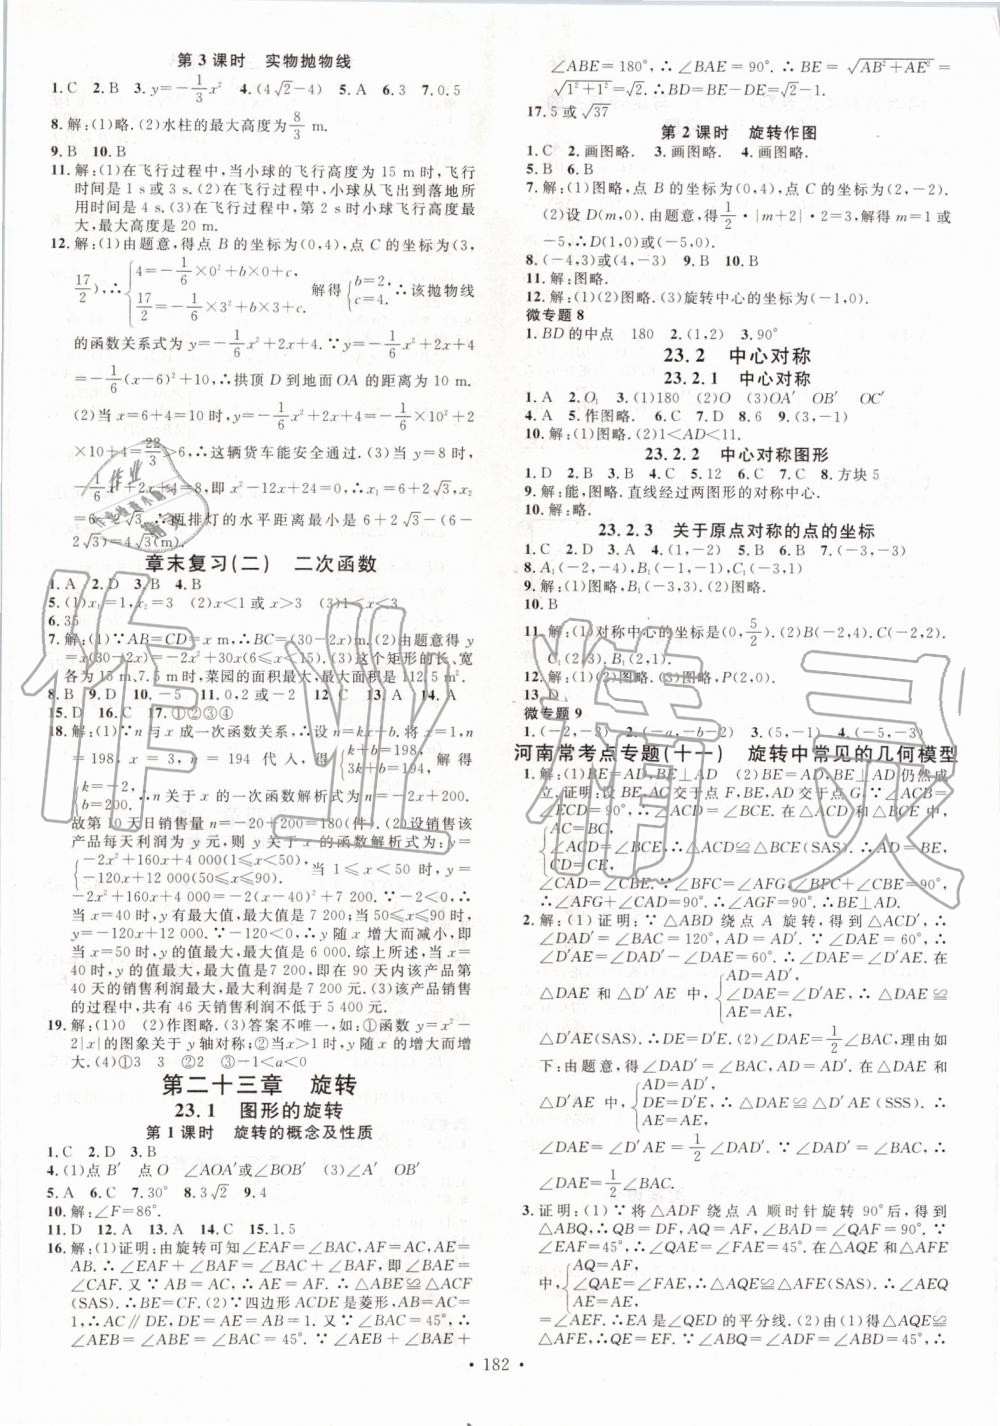 第3课时　实物抛物线
1.C　2.B　3.y=-1/3x²　4.(4√2-4)　5.A　6.3　7.0.5
8.解:(1)略.(2)水柱的最大高度为8/3 m.
9.B　10.B
11.解:(1)在飞行过程中,当小球的飞行高度为 15 m时,飞行
时间是 1 s或3 s.(2)在飞行过程中,小球从飞出到落地所
用时间是 4 s.(3)在飞行过程中,第 2 s时小球飞行高度最
大,最大高度是 20 m.
12.解:(1)由题意,得点 B 的坐标为(0,4),点 C 的坐标为(3,
17/2),∴{4=-1/6×0²+b×0+c, 17/2=-1/6×3²+b×3+c, 解得{b=2, c=4. ∴该抛物线
的函数关系式为 y=-1/6x²+2x+4. ∵y=-1/6x²+2x+4
=-1/6(x-6)²+10,∴拱顶 D 到地面 OA 的距离为 10 m.
(2)当 x=6+4=10 时,y=-1/6x²+2x+4=-1/6×10²+2
×10+4=22/3>6,∴这辆货车能安全通过.(3)当 y=8时,
-1/6x²+2x+4=8,即 x²-12x+24=0,∴x₁=6+2√3,x₂
=6-2√3,∴两排灯的水平距离最小是 6+2√3-(6-
2√3)=4√3(m).
章末复习(二)　二次函数
1.A　2.D　3.B　4.B
5.(1)x₁=1,x₂=3　(2)x<1 或 x>3　(3)k<2
6.35
7.解:(1)∵AB=CD=x m,∴BC=(30-2x)m.(2)由题意得 y
=x(30-2x)=-2x²+30x(6≤x<15).(3)这个矩形的长、宽
各为 15 m、7.5 m时,菜园的面积最大,最大面积是 112.5 m².
8.B　9.D　10.-5　11.0,2或-2　12.C　13.A　14.A
15.D　16.C　17.①②③④
18.解:(1)∵n 与 x 成一次函数关系,∴设 n=kx+b.将 x=1,
n=198,x=3,n=194 代入,得{k+b=198, 3k+b=194, 解得
{k=-2, b=200. ∴n 关于 x 的一次函数解析式为 n=-2x+200.
故第 10 天日销售量 n=-20+200=180(件).(2)设销售该
产品每天利润为 y 元,则 y 关于 x 的函数解析式为:y=
{-2x²+160x+4 000(1≤x<50), -120x+12 000(50≤x≤90). 当 1≤x<50 时,y=
-2x²+160x+4 000=-2(x-40)²+7 200,∵-2<0,∴
当 x=40 时,y 有最大值,最大值是 7 200;当 50≤x≤90 时,
y=-120x+12 000,∵-120<0,∴y 随 x 增大而减小,即
当 x=50 时,y 的值最大,最大值是 6 000.综上所述,当 x=
40 时,y 的值最大,最大值是 7 200,即在 90 天内该产品第
40 天的销售利润最大,最大利润是 7 200 元.(3)该产品销售
的过程中,共有 46 天销售利润不低于 5 400 元.
19.解:(1)0　(2)作图略.(3)答案不唯一,如:①函数 y=x²-
2|x|的图象关于 y 轴对称;②当 x>1 时,y 随 x 的增大而增
大.(4)①3　3　②2　③-1<a<0
第二十三章　旋转
23.1　图形的旋转
第1课时　旋转的概念及性质
1.C　2.D　3.B
4.(1)点 B′　点 O　∠AOA′或∠BOB′　(2)A′　OB′
5.A　6.C　7.30°　8.3√2　9.4
10.解:∠F=86°.
11.D　12.A　13.A　14.C　15.1.5
16.解:(1)证明:由旋转可知∠EAF=∠BAC,AF=AC,AE=
AB.∴∠EAF+∠BAF=∠BAC+∠BAF,即∠BAE=
∠CAF.又∵AB=AC,∴AE=AF.∴△ABE≌△ACF
(SAS).∴BE=CF.(2)∵四边形 ACDE 是菱形,AB=AC
=1,∴AC∥DE,DE=AE=AB=1.又∵∠BAC=45°,∴
∠AEB=∠ABE=∠BAC=45°.∵∠AEB+∠BAE+
∠ABE=180°,∴∠BAE=90°.∴BE=√(AB²+AE²)=
√(1²+1²)=√2.∴BD=BE-DE=√2-1.
17.5 或√37
第2课时　旋转作图
1.C　2.画图略.　3.C　4.画图略.
5.B　6.B
7.解:(1)图略,点 B 的坐标为(4,0),点 C 的坐标为(2,-2).
(2)设 D(m,0).由题意,得1/2·|m+2|·3=9/2.解得 m=1或
-5,∴D(1,0)或(-5,0).
8.(-4,3)或(4,-3)　9.B　10.B
11.解:图略.
12.解:(1)(2)图略.(3)旋转中心的坐标为(-1,0).
微专题 8
1.BD的中点　180　2.(1,2)　3.90°
23.2　中心对称
23.2.1　中心对称
1.A　2.O₁　3.(1)180　(2)O　(3)OA′　OB′　OC′
4.A　5.作图略.　6.C　7.D　8.6　9.(3,-1)
10.解:(1)图略.(2)1<AD<11.
23.2.2　中心对称图形
1.D　2.B　3.B　4.C　5.12　6.C　7.C　8.方块 5
9.解:能,图略.直线经过两图形的对称中心.
10.解:略.
23.2.3　关于原点对称的点的坐标
1.C　2.D　3.C　4.A　5.D　6.四　7.(-5,-3)
8.A₁(-2,-4),B₁(-1,-1),C₁(-3,-1)
9.解:(1)图略.(2)图略.
10.B
11.解:(1)对称中心的坐标是(0,5/2).(2)B(-2,4),C(-2,2),
C₁(2,3),B₁(2,1).
12.解:(1)图略.(2)图略.(3)图略,P(2,0).
13.D
微专题 9
1.(-2,-2)　2.(-a,-b-2)　3.(5,-1)　4.(-5,-3)
河南常考点专题(十一)　旋转中常见的几何模型
1.解:(1)AD=BE,BE⊥AD　(2)BE=AD,BE⊥AD 仍然成
立.证明:设 BE,AC 交于点 F,BE,AD 交于点 G.∵∠ACB=
∠ECD=90°,∴∠ACD=∠BCE.在△ACD 和△BCE 中,
{AC=BC, ∠ACD=∠BCE, CD=CE. ∴△ACD≌△BCE(SAS).∴AD=BE,
∠CAD=∠CBE.∵∠BFC=∠AFG,∠BFC+∠CBE=90°,
∴∠AFG+∠CAD=90°.∴∠AGF=90°.∴BE⊥AD.
2.解:(1)证明:∵△ABD 绕点 A 旋转,得到△ACD′,∴
∠DAD′=∠BAC=120°,AD=AD′.∵∠DAE=60°,∴
∠D′AE=∠DAD′-∠DAE=120°-60°=60°.∴∠DAE=
∠D′AE.在△DAE 和△D′AE 中,{AD=AD′, ∠DAE=∠D′AE, AE=AE, ∴△DAE≌
△D′AE(SAS).∴DE=D′E.(2)∠DAE=1/2∠BAC.理由如
下:由题意,得∠DAD′=∠BAC,AD=AD′.在△DAE 和
△D′AE 中,{AD=AD′, DE=D′E, AE=AE, ∴△DAE≌△D′AE(SSS).∴
∠DAE=∠D′AE=1/2∠DAD′.∵∠DAD′=∠BAC,∴
∠DAE=1/2∠BAC.
3.证明:(1)∵将△ADF 绕点 A 顺时针旋转 90°后,得到
△ABQ,∴QB=DF,AQ=AF,∠QAF=90°.∵∠EAF=
45°,∴∠QAE=∠FAE=45°.在△AQE 和△AFE
中,{AQ=AF, ∠QAE=∠FAE, AE=AE, ∴△AQE≌△AFE(SAS).∴∠AEQ
=∠AEF.∴EA 是∠QED 的平分线.(2)由(1)得△AQE≌
• 182 •